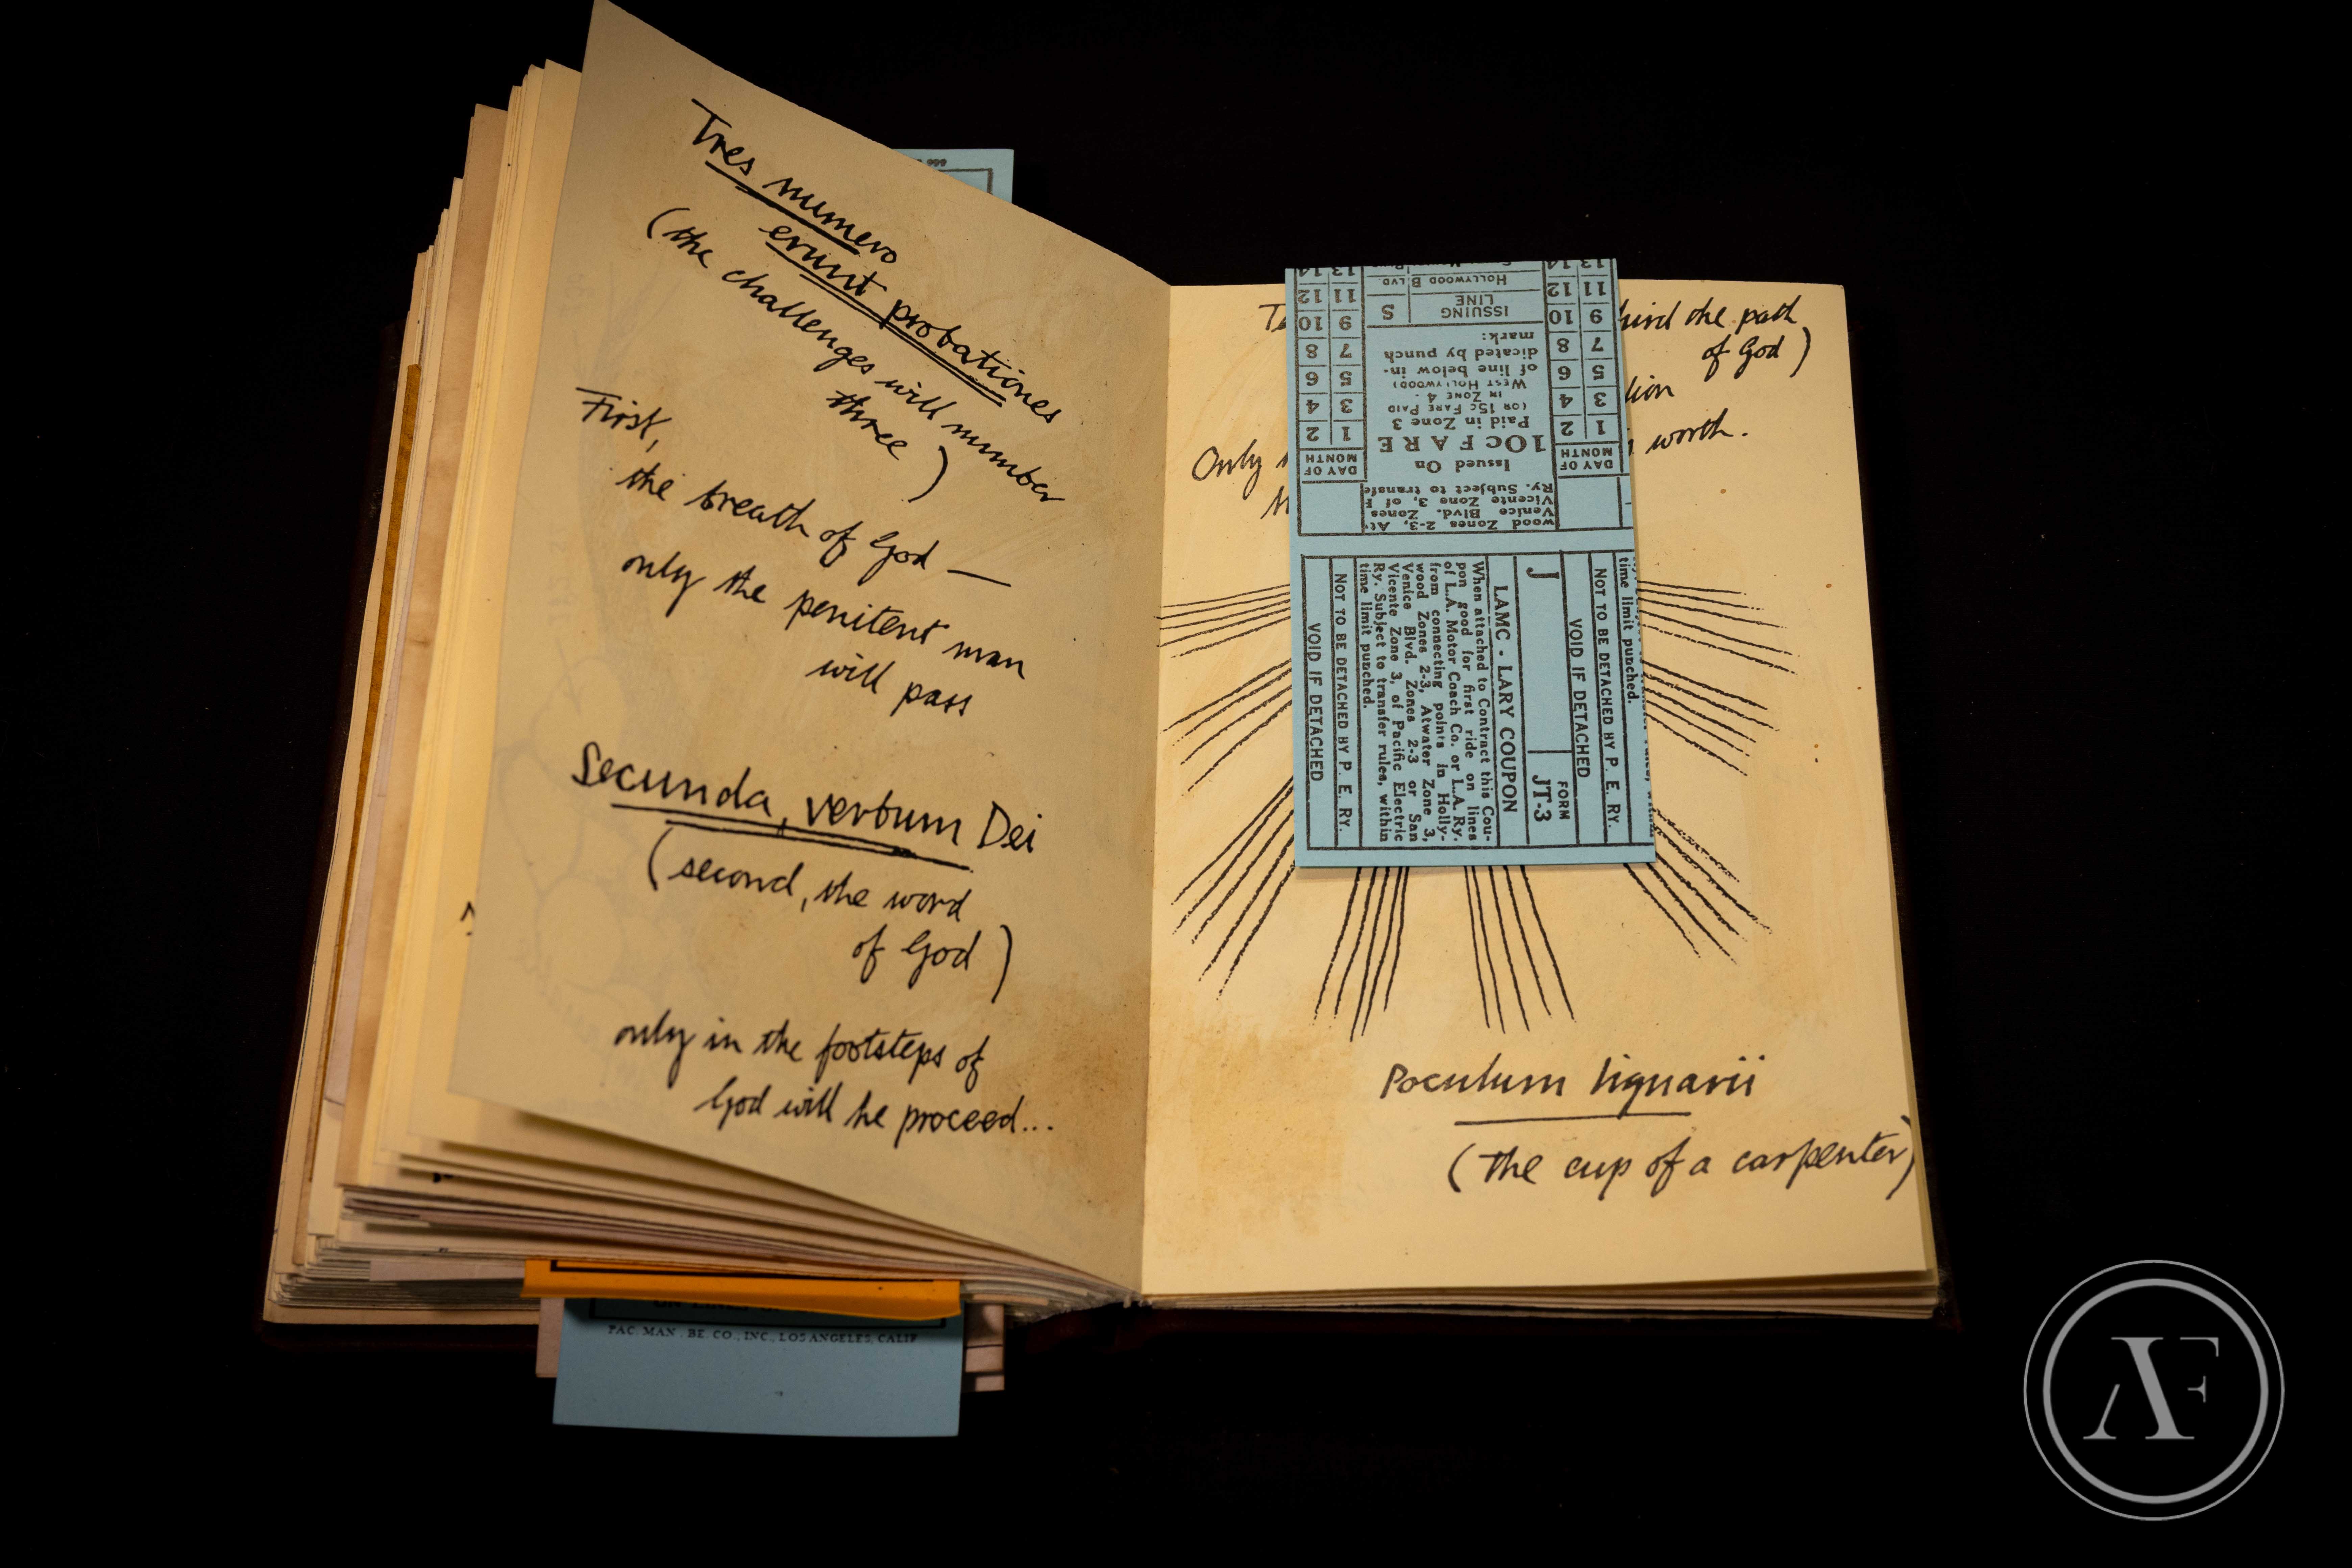 Tres numero
erunt probationes
(the challenges will number
three)
First,
the breath of God —
only the penitent man
will pass
Secunda, verbum Dei
(second, the word
of God)
only in the footsteps of
God will he proceed...
PAC. MAN. BE. CO., INC., LOS ANGELES, CALIF
the path
of God)
Only
worth.
13 14
HOLLYWOOD BLVD
11 12
11 12
ISSUING LINE
S
9 10
9 10
7 8
7 8
5 6
5 6
3 4
3 4
1 2
1 2
DAY OF MONTH
DAY OF MONTH
Issued On
10c FARE
Paid in Zone 3
(OR 15c FARE PAID
IN ZONE 4 -
WEST HOLLYWOOD)
of line below in-
dicated by punch
mark:
wood Zones 2-3, At
Venice Blvd. Zones
Vicente Zone 3, of
Ry. Subject to transfe
time limit punched.
NOT TO BE DETACHED BY P. E. RY.
VOID IF DETACHED
J
FORM
JT-3
LAMC - LARY COUPON
When attached to Contract this Cou-
pon good for first ride on lines
of L.A. Motor Coach Co. or L.A. Ry.
from connecting points in Holly-
wood Zones 2-3, Atwater Zone 3,
Venice Blvd. Zones 2-3 or San
Vicente Zone 3, of Pacific Electric
Ry. Subject to transfer rules, within
time limit punched.
NOT TO BE DETACHED BY P. E. RY.
VOID IF DETACHED
Poculum lignarii
(the cup of a carpenter)
AF